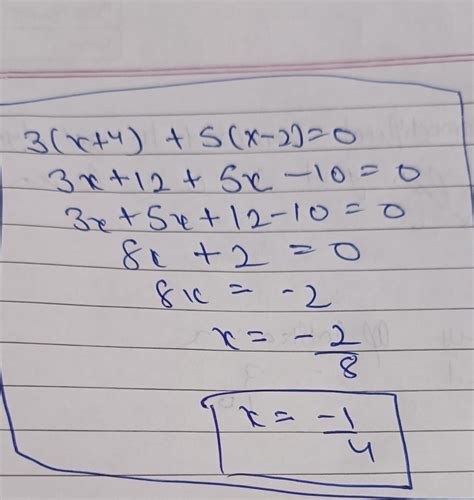 3(x+4) + 5(x-2)=0
3x+12 + 5x -10 = 0
3x+5x+12-10=0
8x + 2 = 0
8x = -2
x = -2/8
x = -1/4